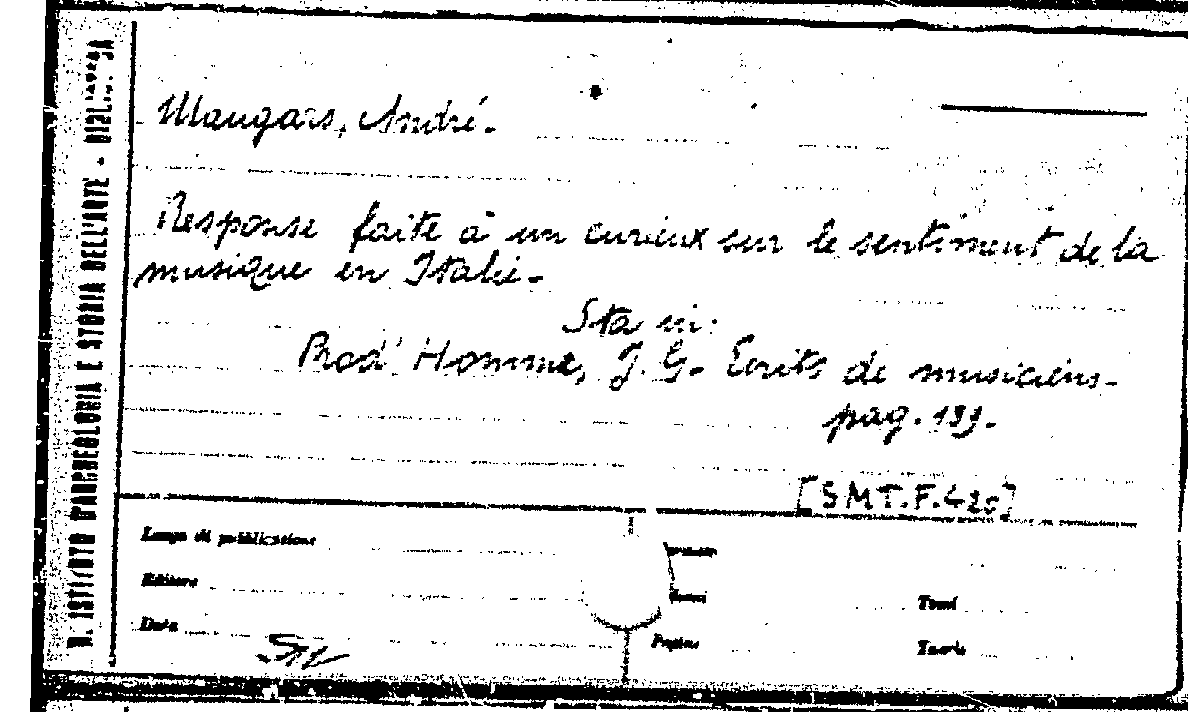 R. ISTITUTO D'ARCHEOLOGIA E STORIA DELL'ARTE -
Maugars, André.
Response faite à un curieux sur le sentiment de la
musique en Italie.
Sta in:
Prod'Homme, J. G. Ecrits de musiciens.
pag. 199.
[SMT.F.420]
Luogo di pubblicazione
Editore
Data
Pagine
Tomi
Tavole